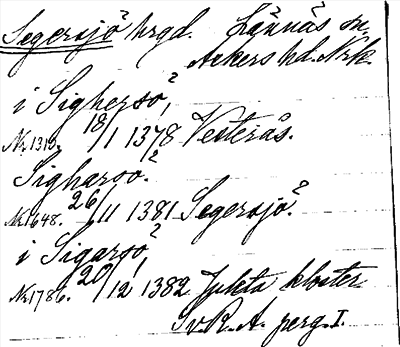 Segersjö hrgd. Lännäs sn,
Askers hd. Nrk.
i Sighersø,
Nr 1319. 18/1 1378 Vesterås.
Sigharsö.
Nr 1648. 26/11 1381 Segersjö.
i Sigarsö,
Nr 1786. 20/12 1382 Juleta kloster
Sv. R. A. perg. I.